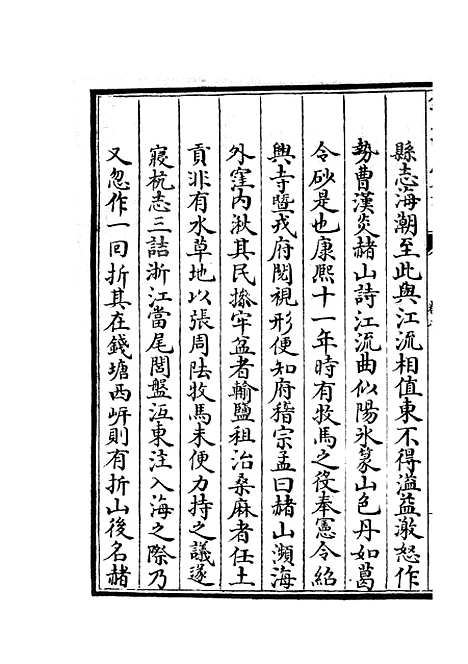 縣志海潮至此與江流相值東不得溢益激怒作
勢曹漢炎赭山詩江流曲似陽氷篆山色丹如葛
令砂是也康熙十一年時有牧馬之役奉憲令紹
興寺暨戎府閱視形便知府稽宗孟曰赭山瀕海
外窪内湫其民操牢盆者輸鹽租治桑麻者任土
貢非有水草地以張周阹牧馬未便力持之議遂
寢杭志三詰浙江當尾閭盤沍東注入海之際乃
又忽作一回折其在錢塘西岍則有折山後名赭